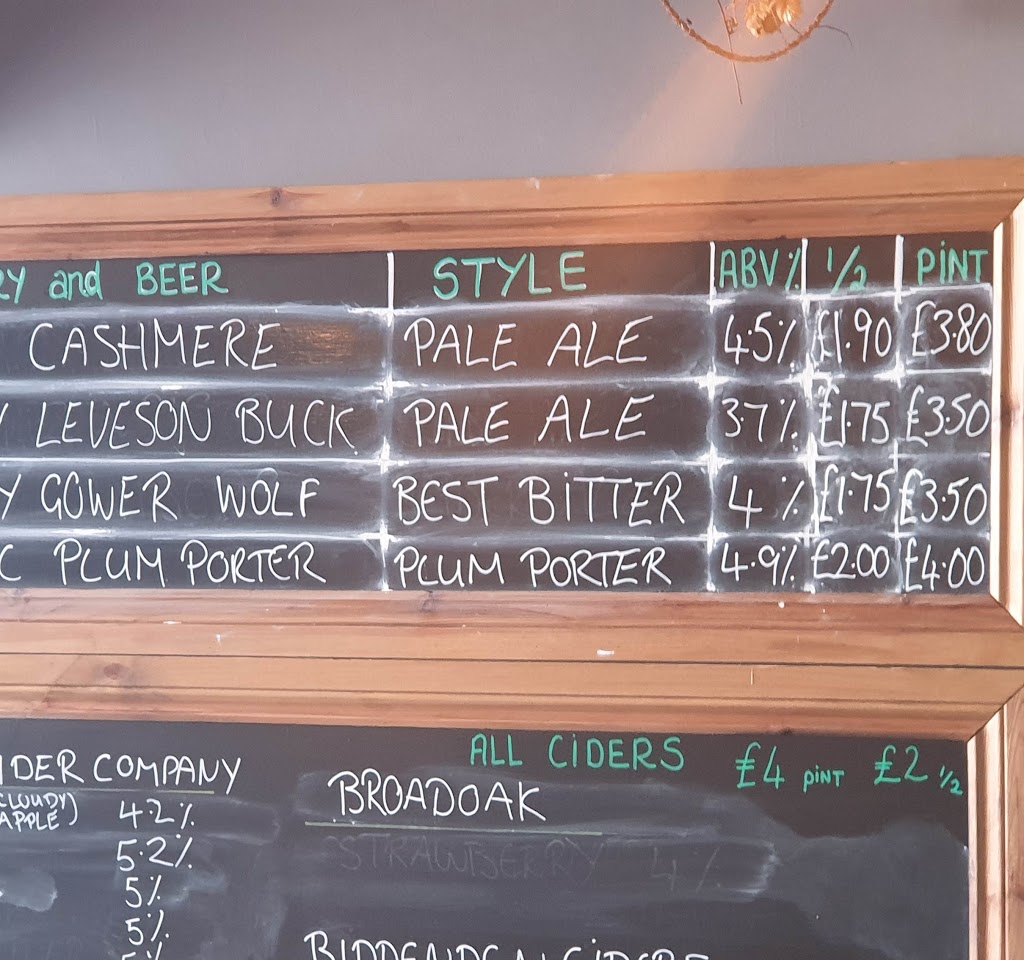 RY and BEER STYLE ABV% 1/2 PINT
CASHMERE PALE ALE 4.5% £1.90 £3.80
Y LEVESON BUCK PALE ALE 3.7% £1.75 £3.50
Y GOWER WOLF BEST BITTER 4% £1.75 £3.50
C PLUM PORTER PLUM PORTER 4.9% £2.00 £4.00
ALL CIDERS £4 PINT £2 1/2
IDER COMPANY
CLOUDY) 4.2%
APPLE)
5.2%
5%
5%
BROADOAK
STRAWBERRY 4%